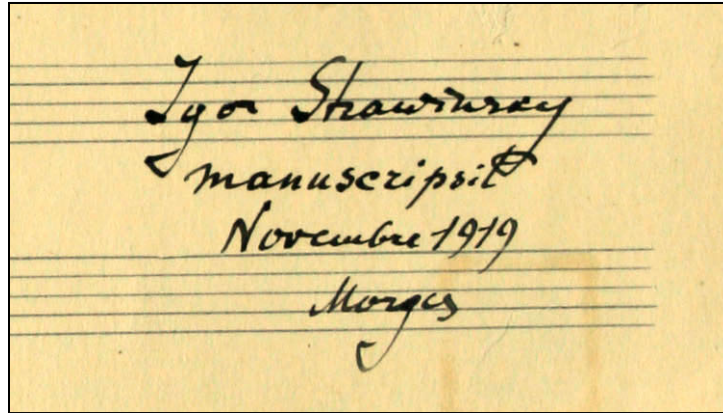 Igor Strawinsky
manuscripsit
Novembre 1919
Morges